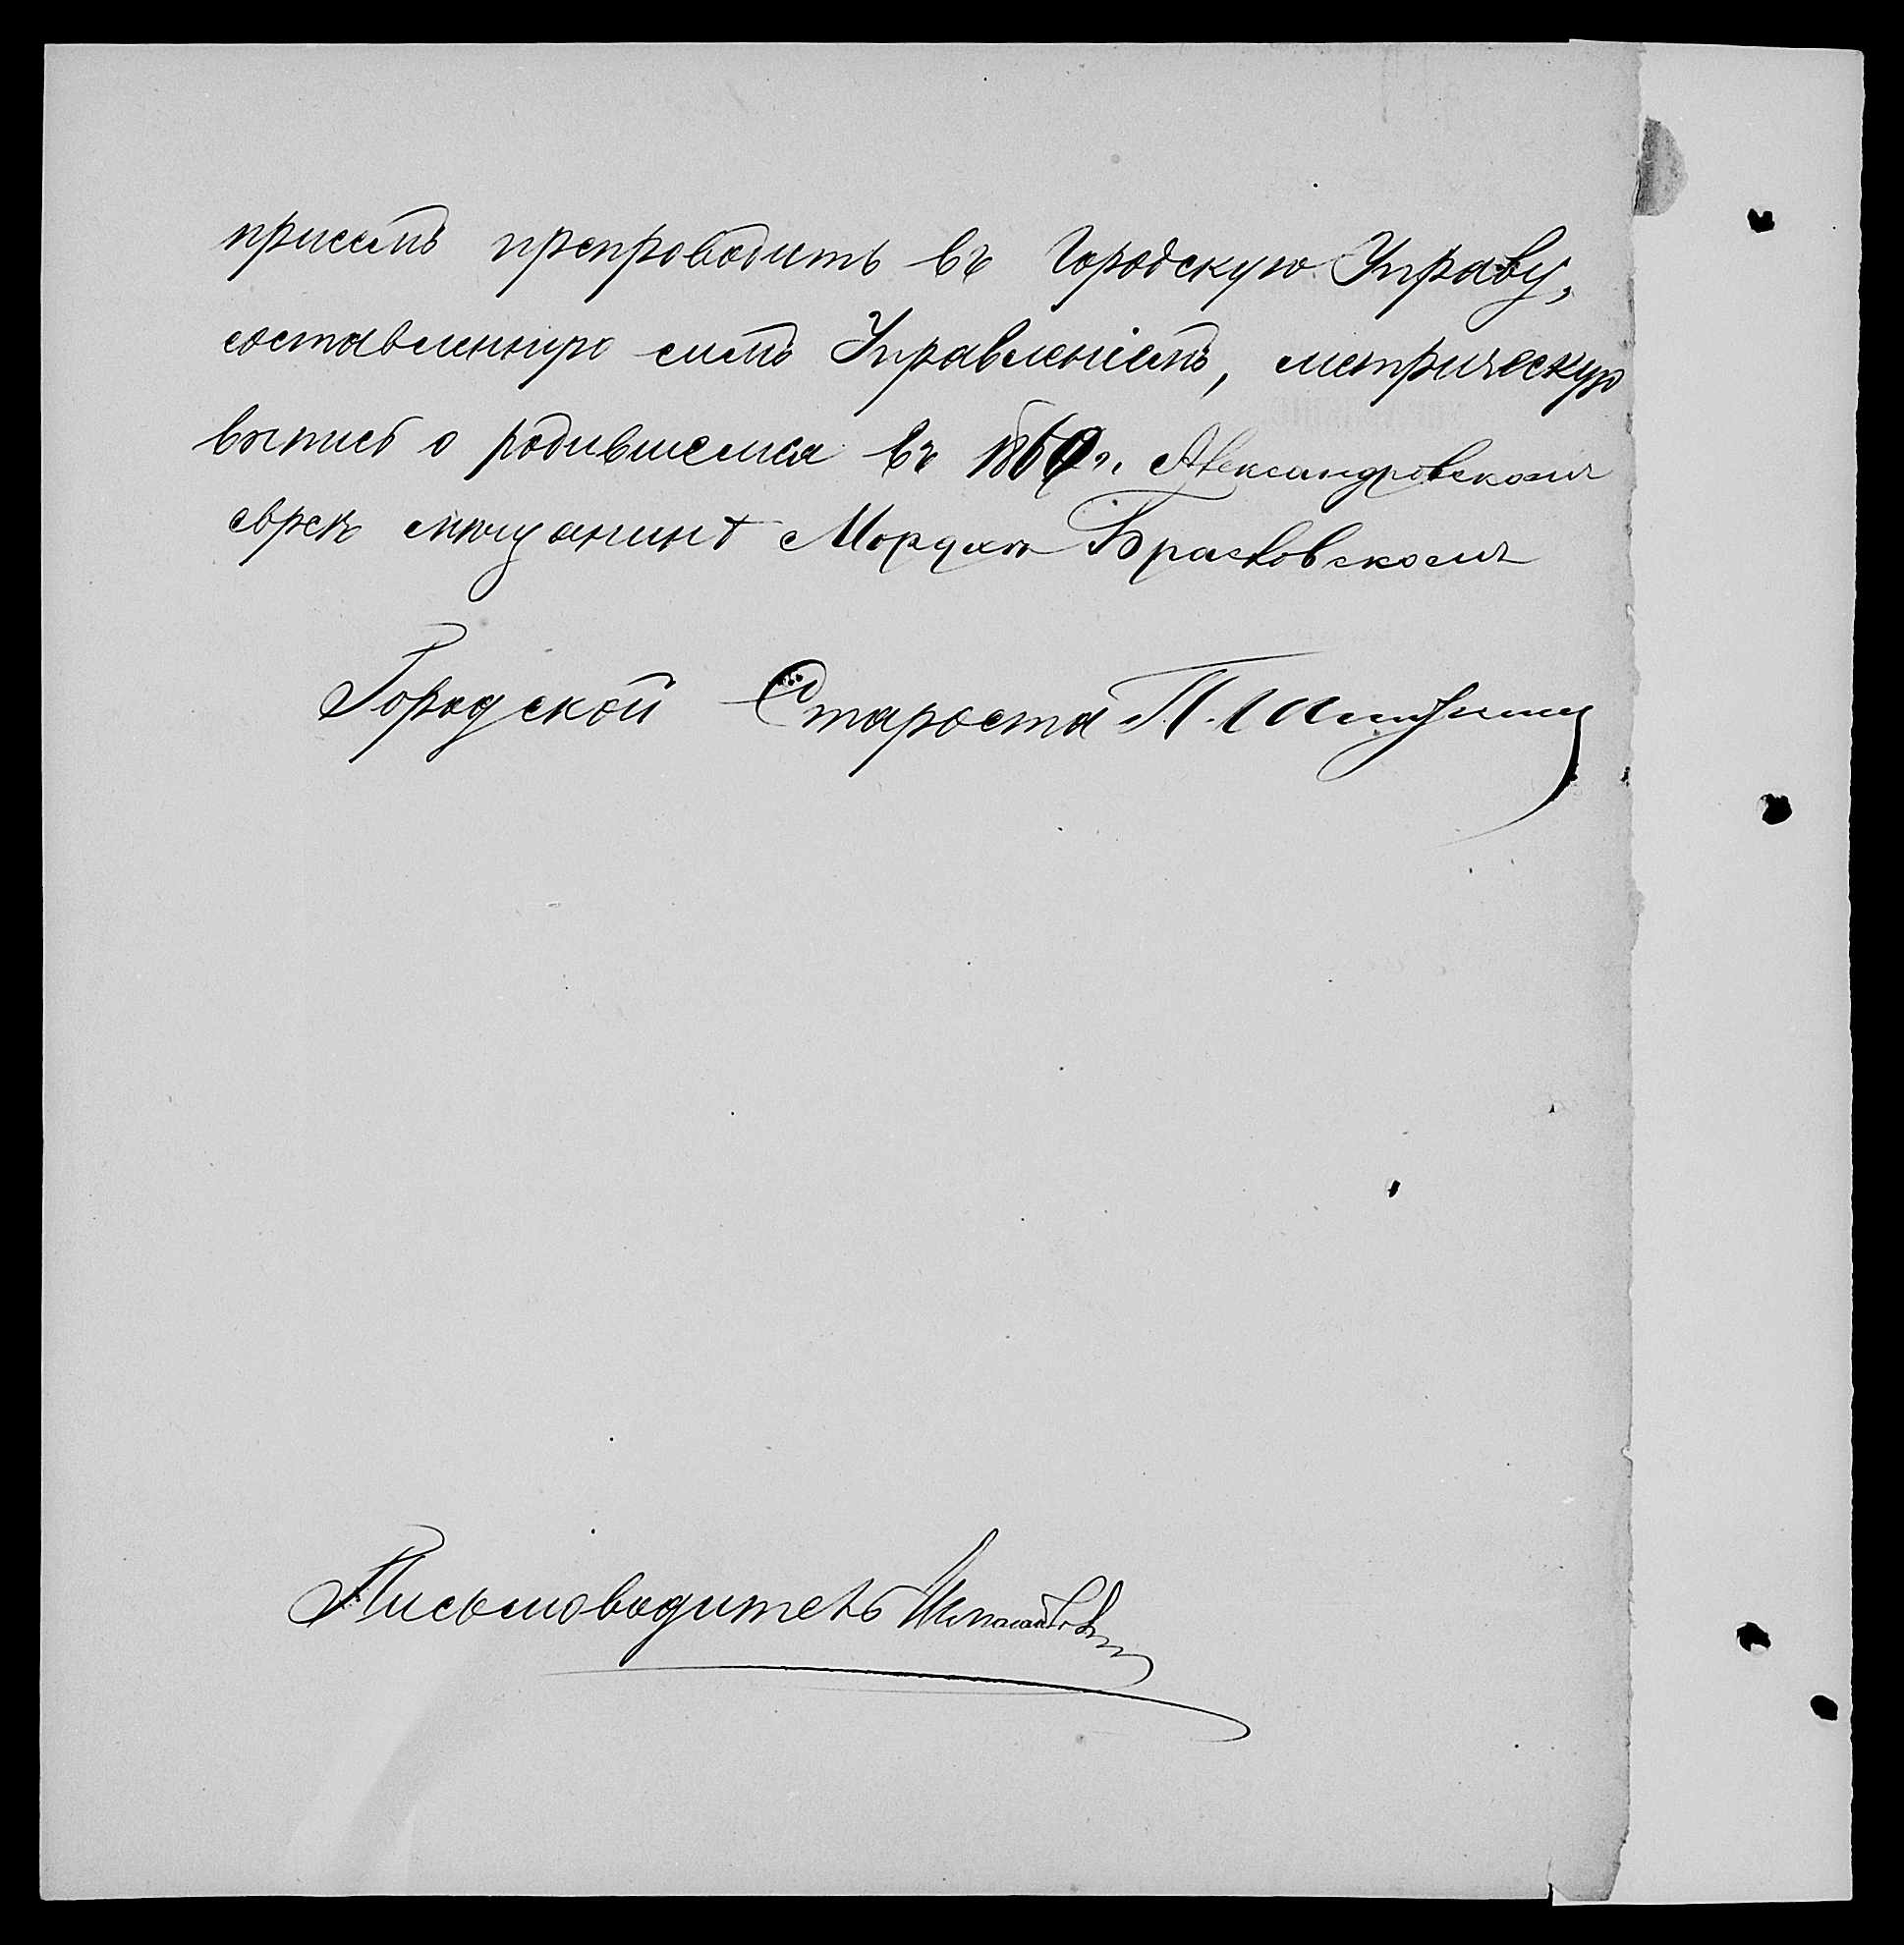 присемъ препроводить въ Городскую Управу,
составленную симъ Управленіемъ, метрическую
выпись о родившемся въ 1860 г. Александровскомъ
еврее мещанинѣ Мордхѣ Брановскомъ
Городской Староста П.
Письмоводитель